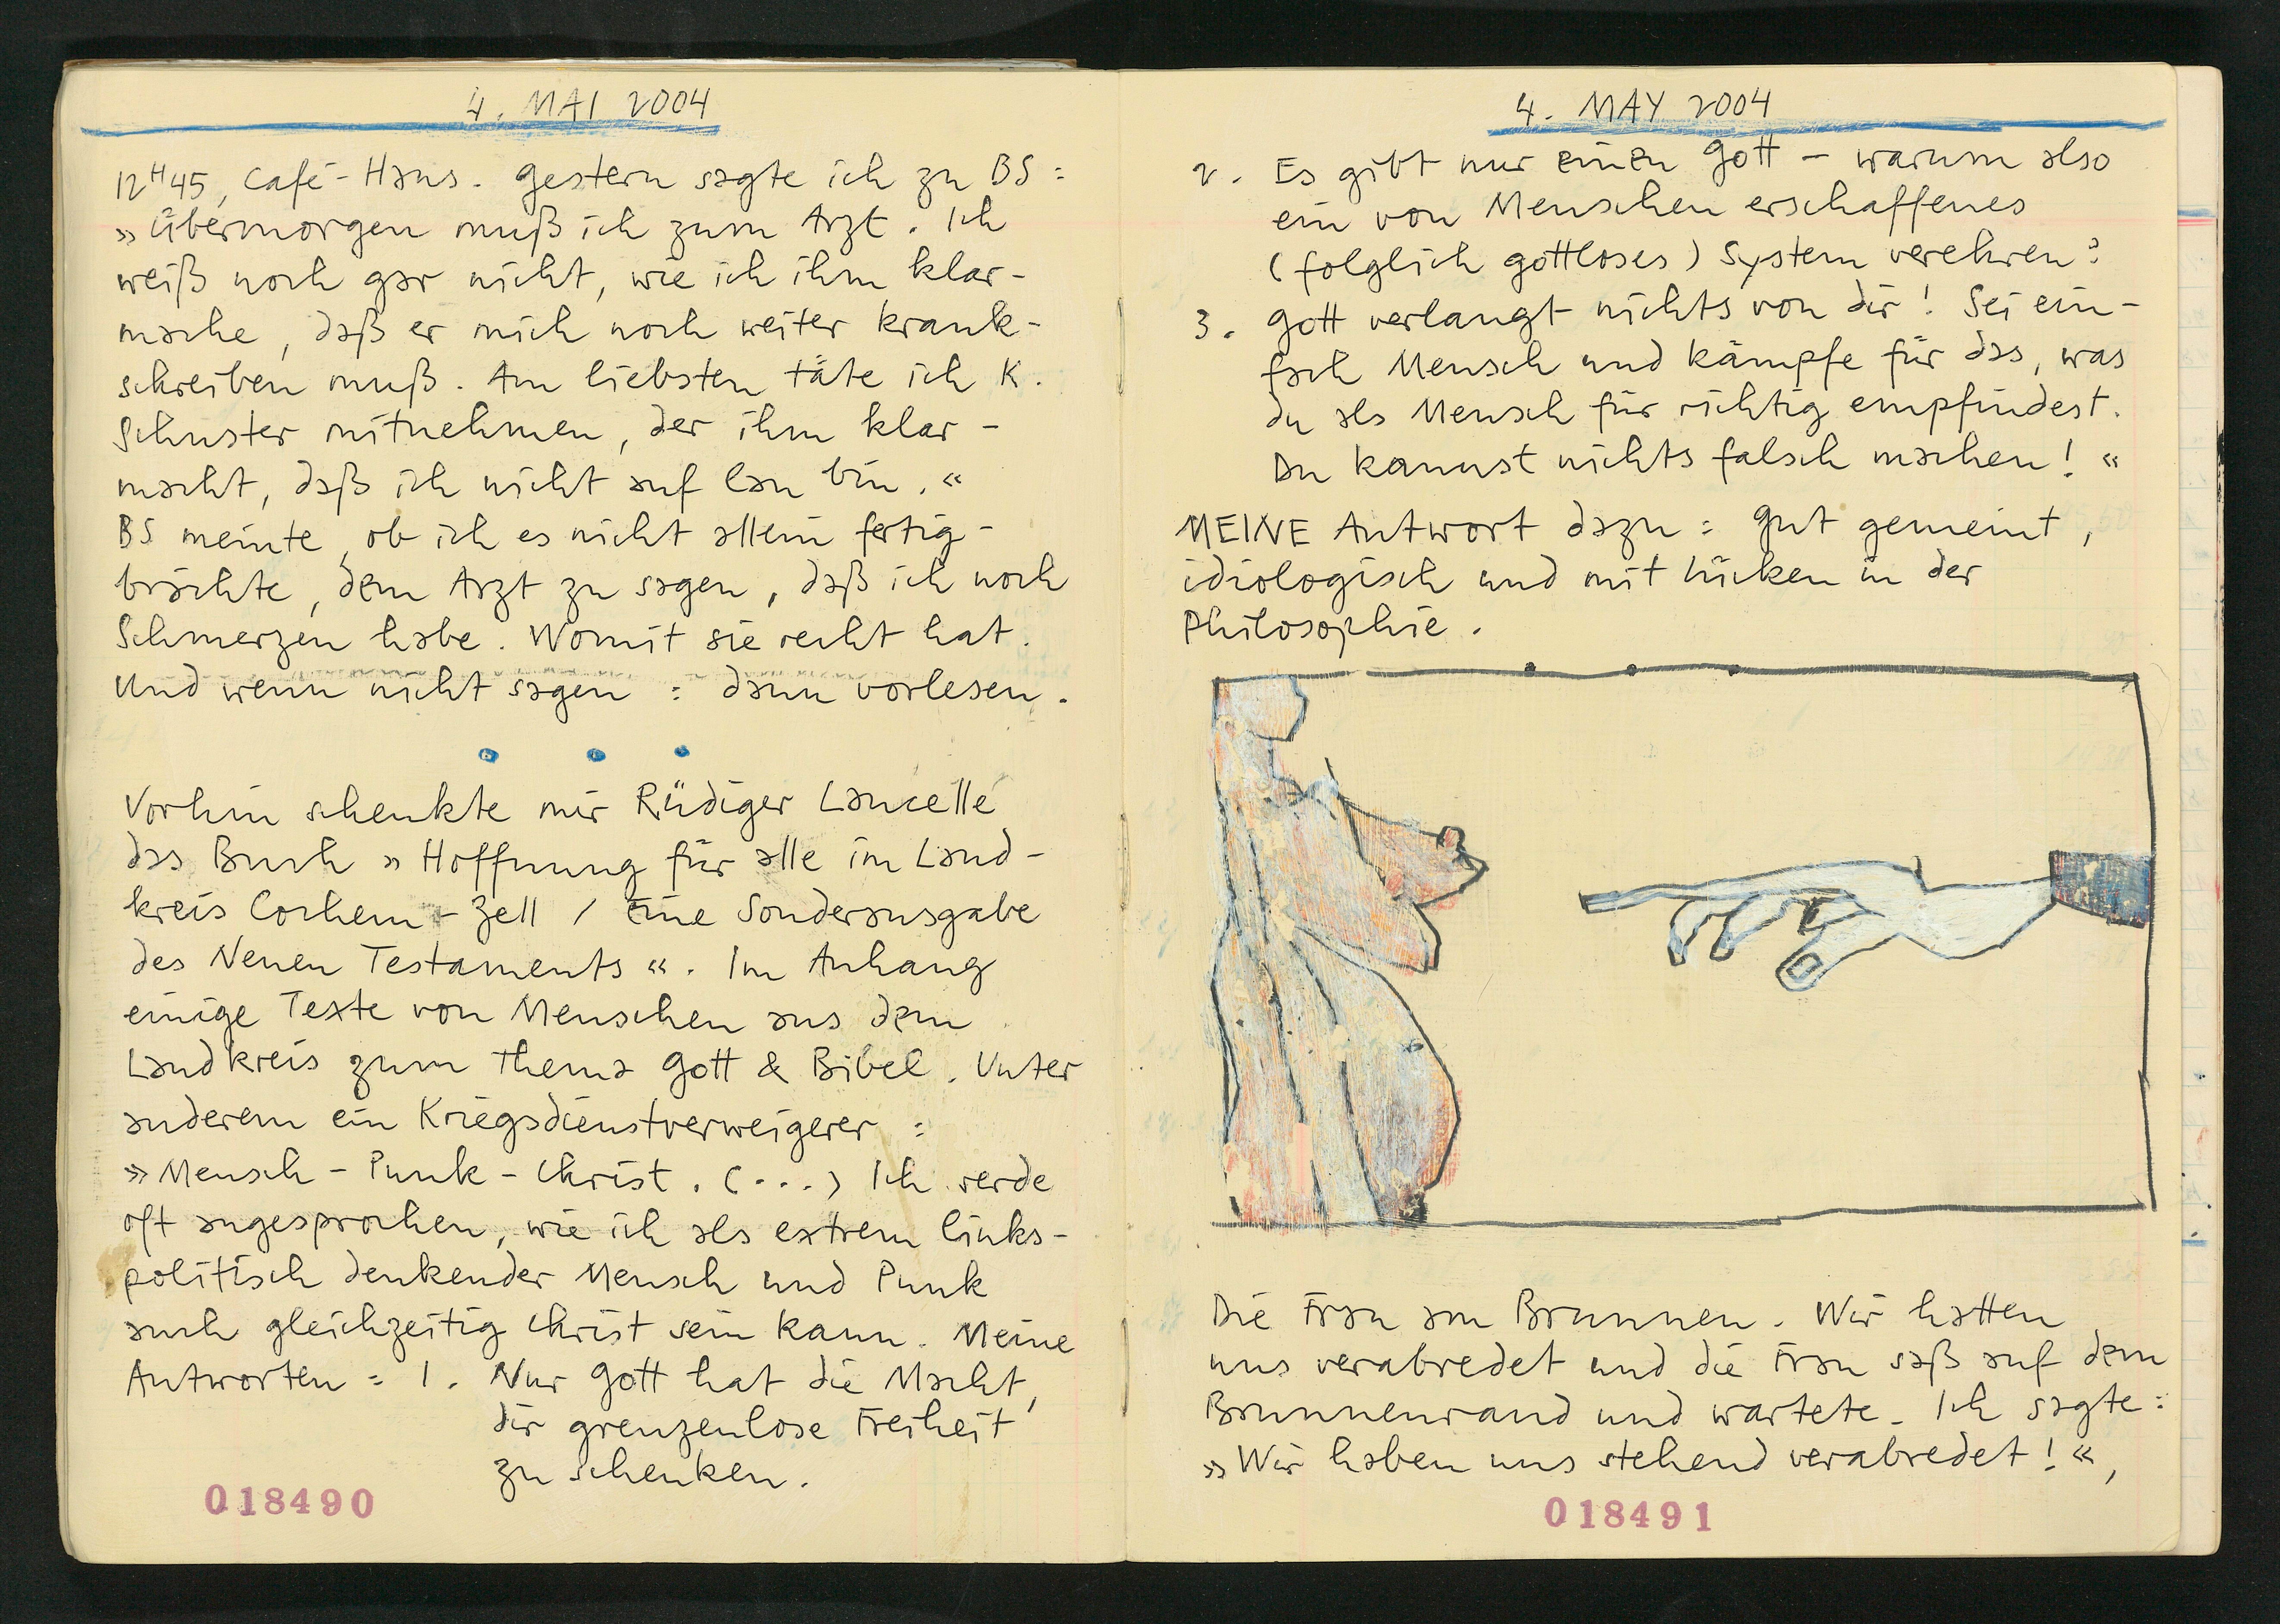 4. MAI 2004
12H45, Café-Haus. Gestern sagte ich zu BS:
»Übermorgen muß ich zum Arzt. Ich
weiß noch gar nicht, wie ich ihm klar-
mache, daß er mich noch weiter krank-
schreiben muß. Am liebsten täte ich K.
Schuster mitnehmen, der ihm klar-
macht, daß ich nicht auf lau bin.«
BS meinte, ob ich es nicht allein fertig-
brächte, dem Arzt zu sagen, daß ich noch
Schmerzen habe. Womit sie recht hat.
Und wenn nicht sagen: dann vorlesen.
Vorhin schenkte mir Rüdiger Lancelle
das Buch »Hoffnung für alle im Land-
kreis Cochem-Zell / Eine Sonderausgabe
des Neuen Testaments«. Im Anhang
einige Texte von Menschen aus dem
Landkreis zum Thema Gott & Bibel. Unter
anderem ein Kriegsdienstverweigerer:
»Mensch-Punk-Christ. (...) Ich werde
oft angesprochen, wie ich als extrem links-
politisch denkender Mensch und Punk
auch gleichzeitig Christ sein kann. Meine
Antworten: 1. Nur Gott hat die Macht,
dir grenzenlose Freiheit
zu schenken.
018490
4. MAY 2004
2. Es gibt nur einen Gott – warum also
ein von Menschen erschaffenes
(folglich gottloses) System verehren?
3. Gott verlangt nichts von dir! Sei ein-
fach Mensch und kämpfe für das, was
du als Mensch für richtig empfindest.
Du kannst nichts falsch machen!«
MEINE Antwort dazu: Gut gemeint,
idiologisch und mit Lücken in der
Philosophie.
Die Frau am Brunnen. Wir hatten
uns verabredet und die Frau saß auf dem
Brunnenrand und wartete. Ich sagte:
»Wir haben uns stehend verabredet!«,
018491